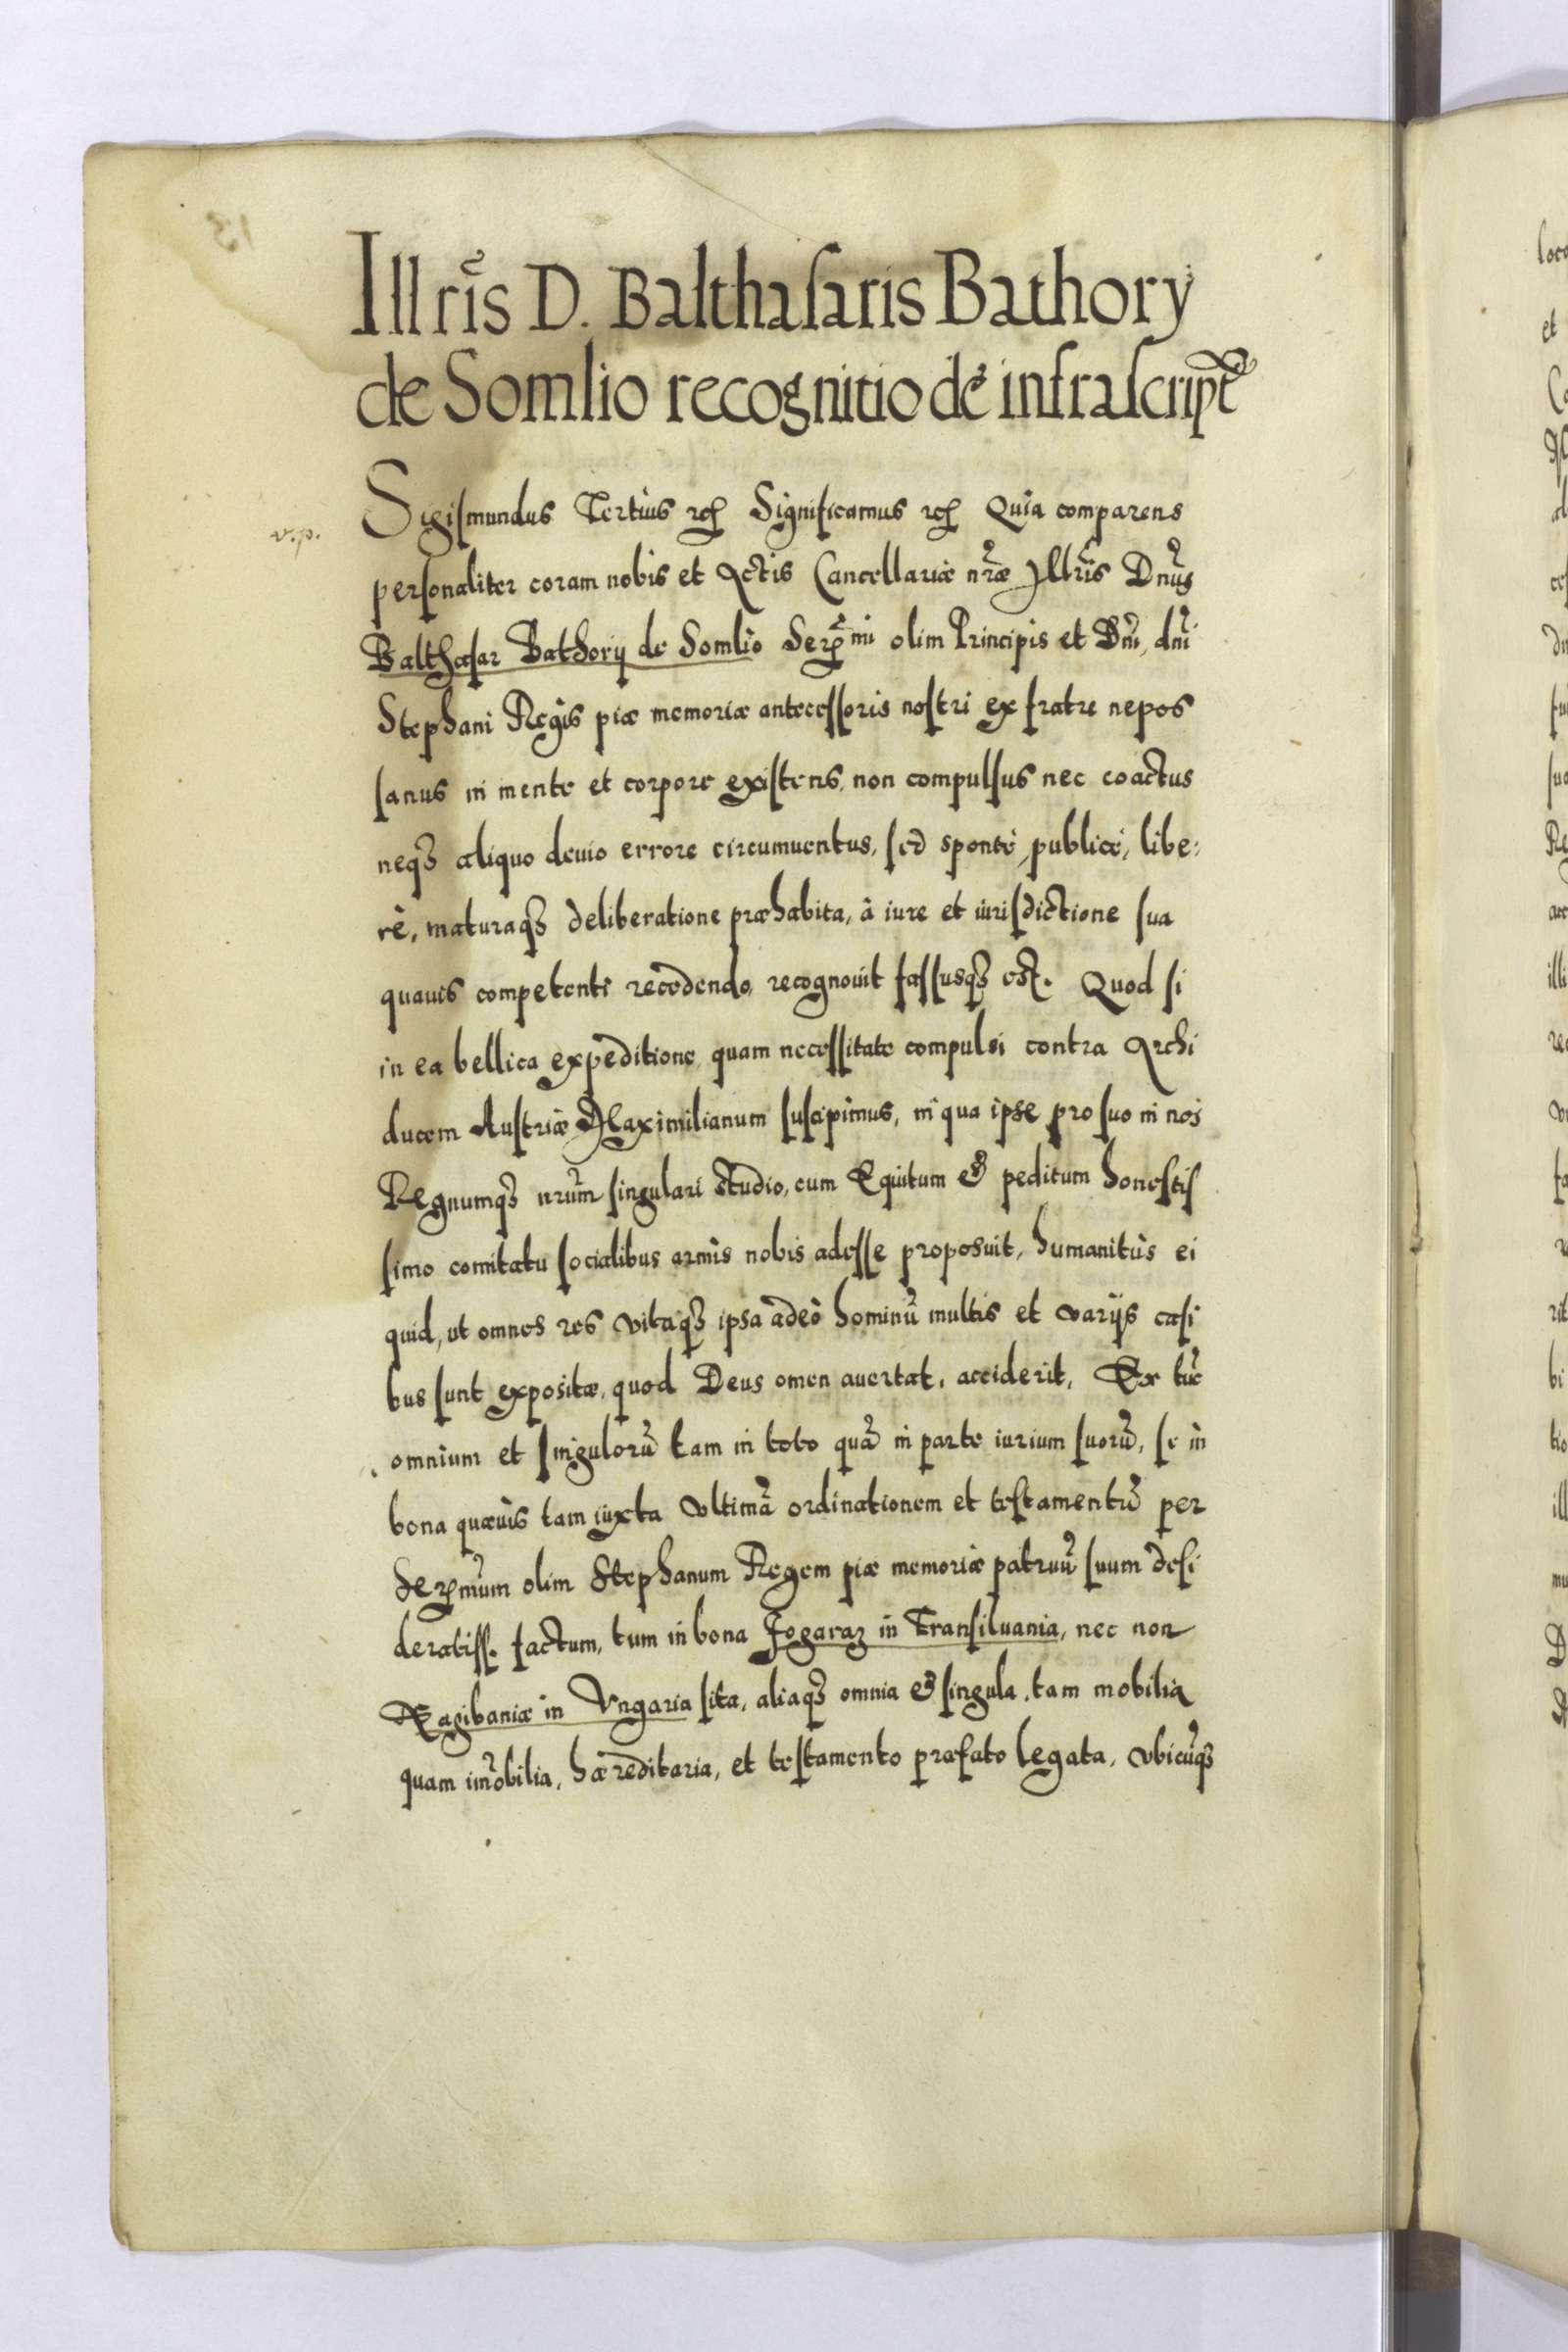 Illr̃is D. Balthasaris Bathory
de Somlio recognitio de infrascript
v.p.
Sigismundus Tertius etc Significamus etc Quia comparens
personaliter coram nobis et Actis Cancellariæ nr̃æ Illr̃is Dnũs
Balthasar Bathorÿ de Somlio Ser̃mi olim Principis et Dñi, dñi
Stephani Regis piæ memoriæ antecessoris nostri ex fratre nepos
sanus in mente et corpore existens, non compulsus nec coactus
neqȝ aliquo deuio errore circumuentus, sed sponte, publice, libe:
rè, maturaqȝ deliberatione præhabita, à iure et iurisdictione sua
quauis competenti recedendo, recognouit fassusqȝ est. Quod si
in ea bellica expeditione, quam necessitate compulsi contra Archi
ducem Austriæ Maximilianum suscipimus, in qua ipse pro suo in nos
Regnumqȝ nrũm singulari studio, cum Equitum & peditum honestis
simo comitatu socialibus armis nobis adesse proposuit, humanitùs ei
quid, ut omnes res vitaqȝ ipsa adeò hominũ multis et varijs casi
bus sunt expositæ, quod Deus omen auertat, acciderit, Ex tũc
omnium et singulorũ tam in toto quã in parte iurium suorũ, se in
bona quæuis tam iuxta vltimã ordinationem et testamentũ per
Ser̃mum olim Stephanum Regem piæ memoriæ patruũ suum desi
deratiss. factum, tum in bona Fogaraz in Transiluania, nec non
Xagibaniæ in Vngaria sita, aliaqȝ omnia & singula, tam mobilia
quam im̃obilia, hæreditaria, et testamento præfato legata, vbicũqȝ